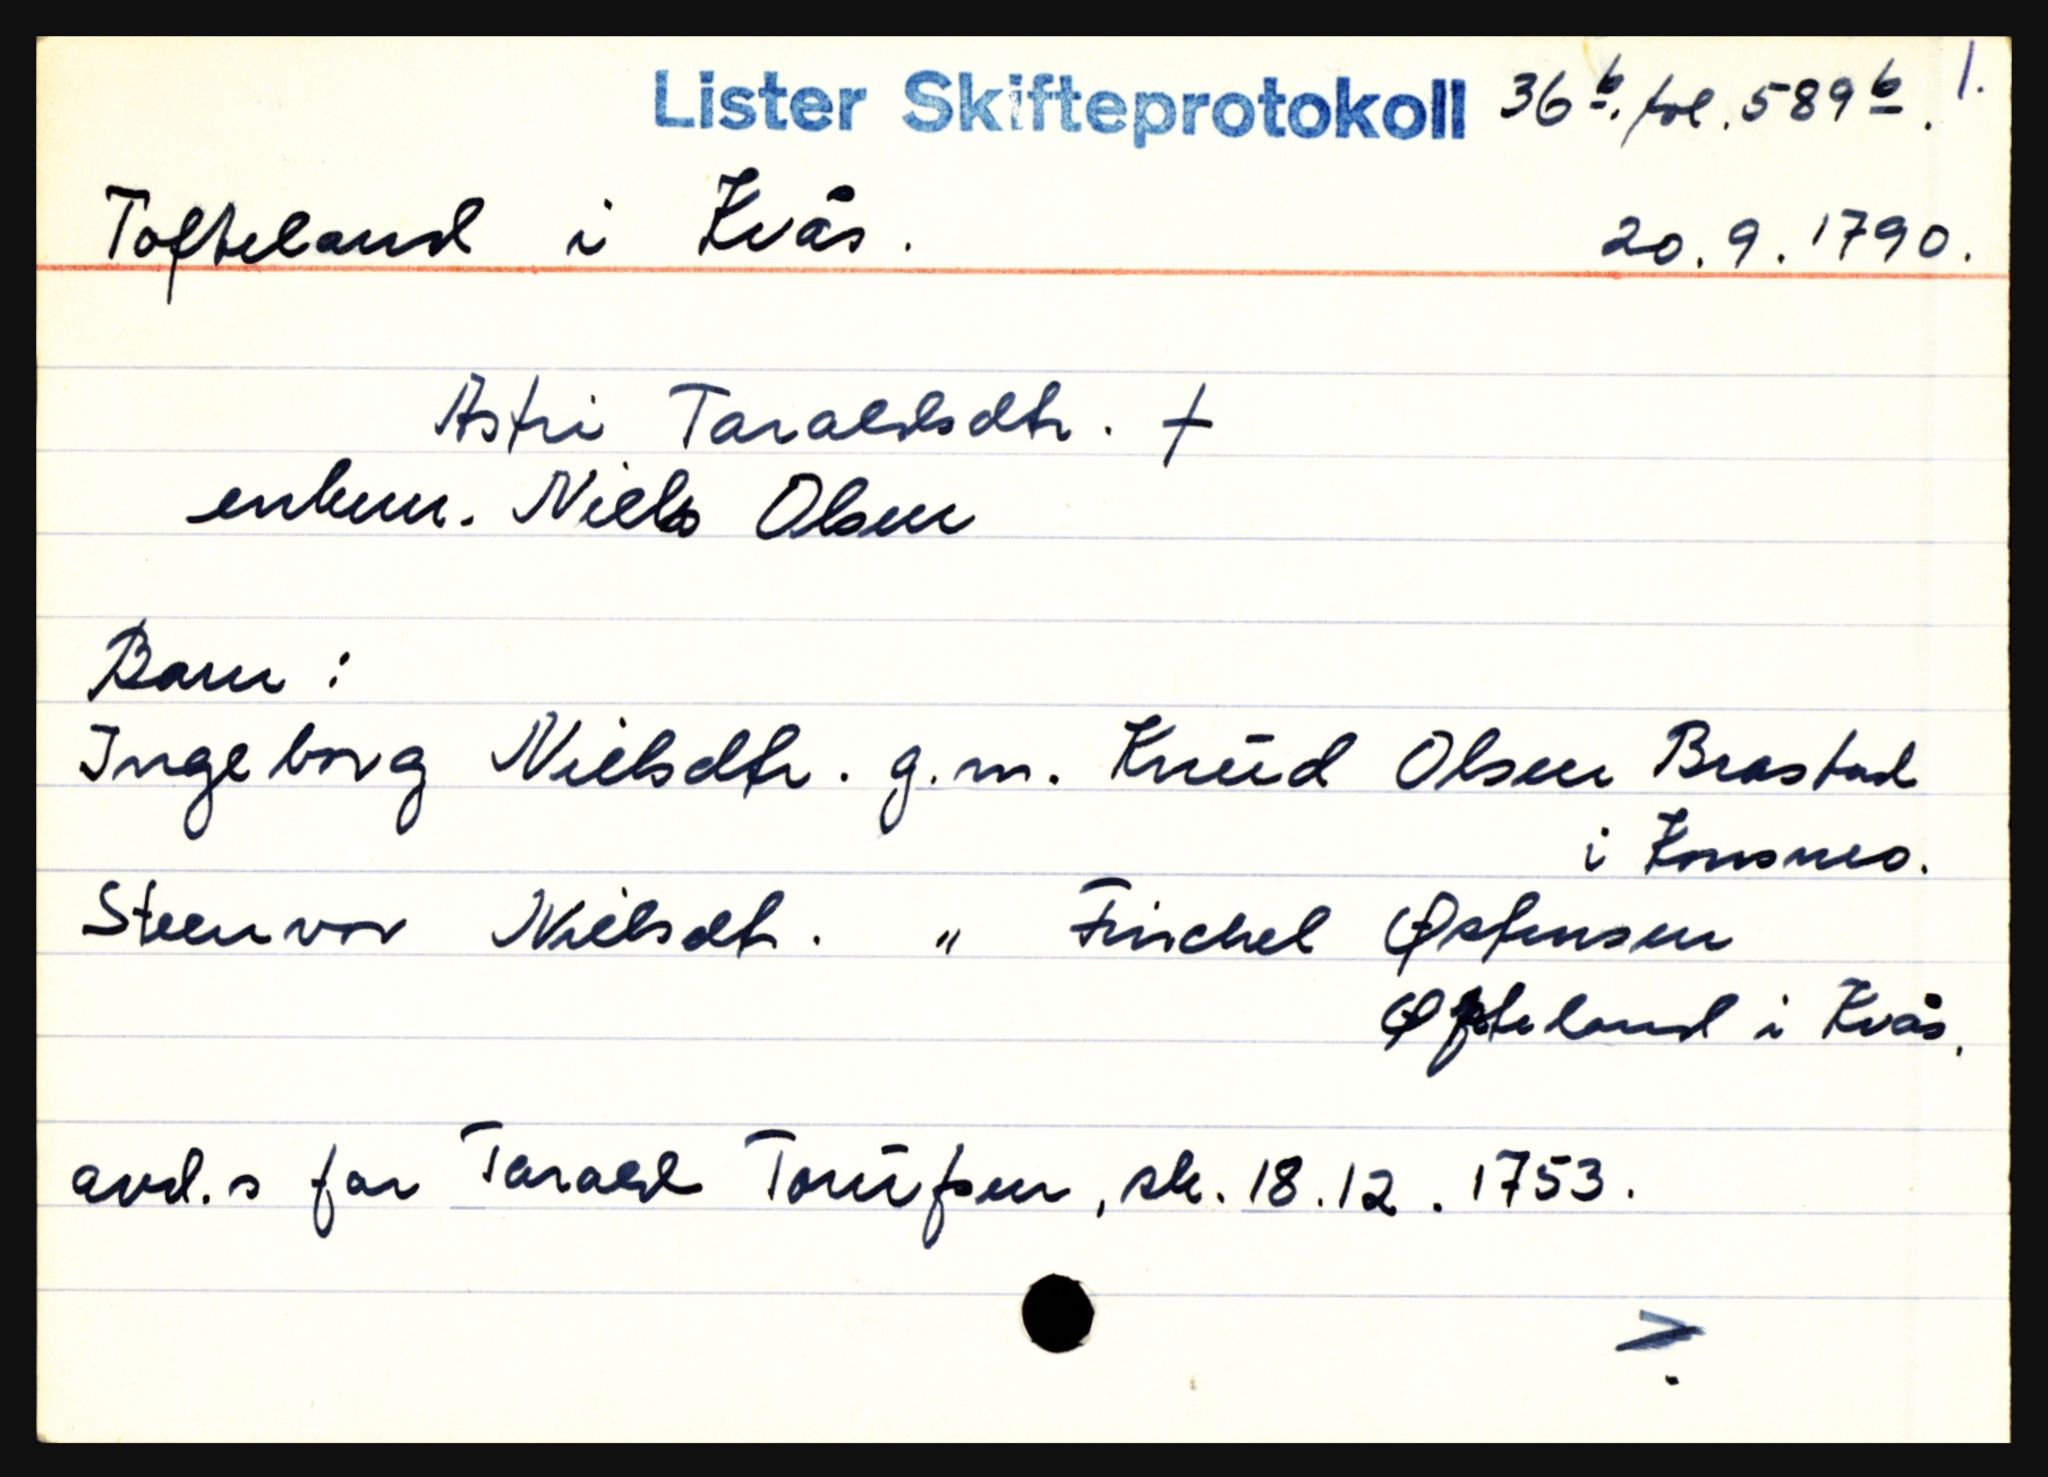 Lister Skifteprotokoll 36 b. fol. 589 b. 1.
Tofteland i Kvås. 20.9.1790.
Astri Taraldsdtr. †
enkem. Niels Olsen
Barn:
Ingeborg Nielsdtr. g.m. Knud Olsen Brastad
i Konsmo.
Steenvor Nielsdtr. " Finchel Østensen
Øfteland i Kvås.
avd.s far Tarald Torüfsen, sk. 18.12.1753.
>.